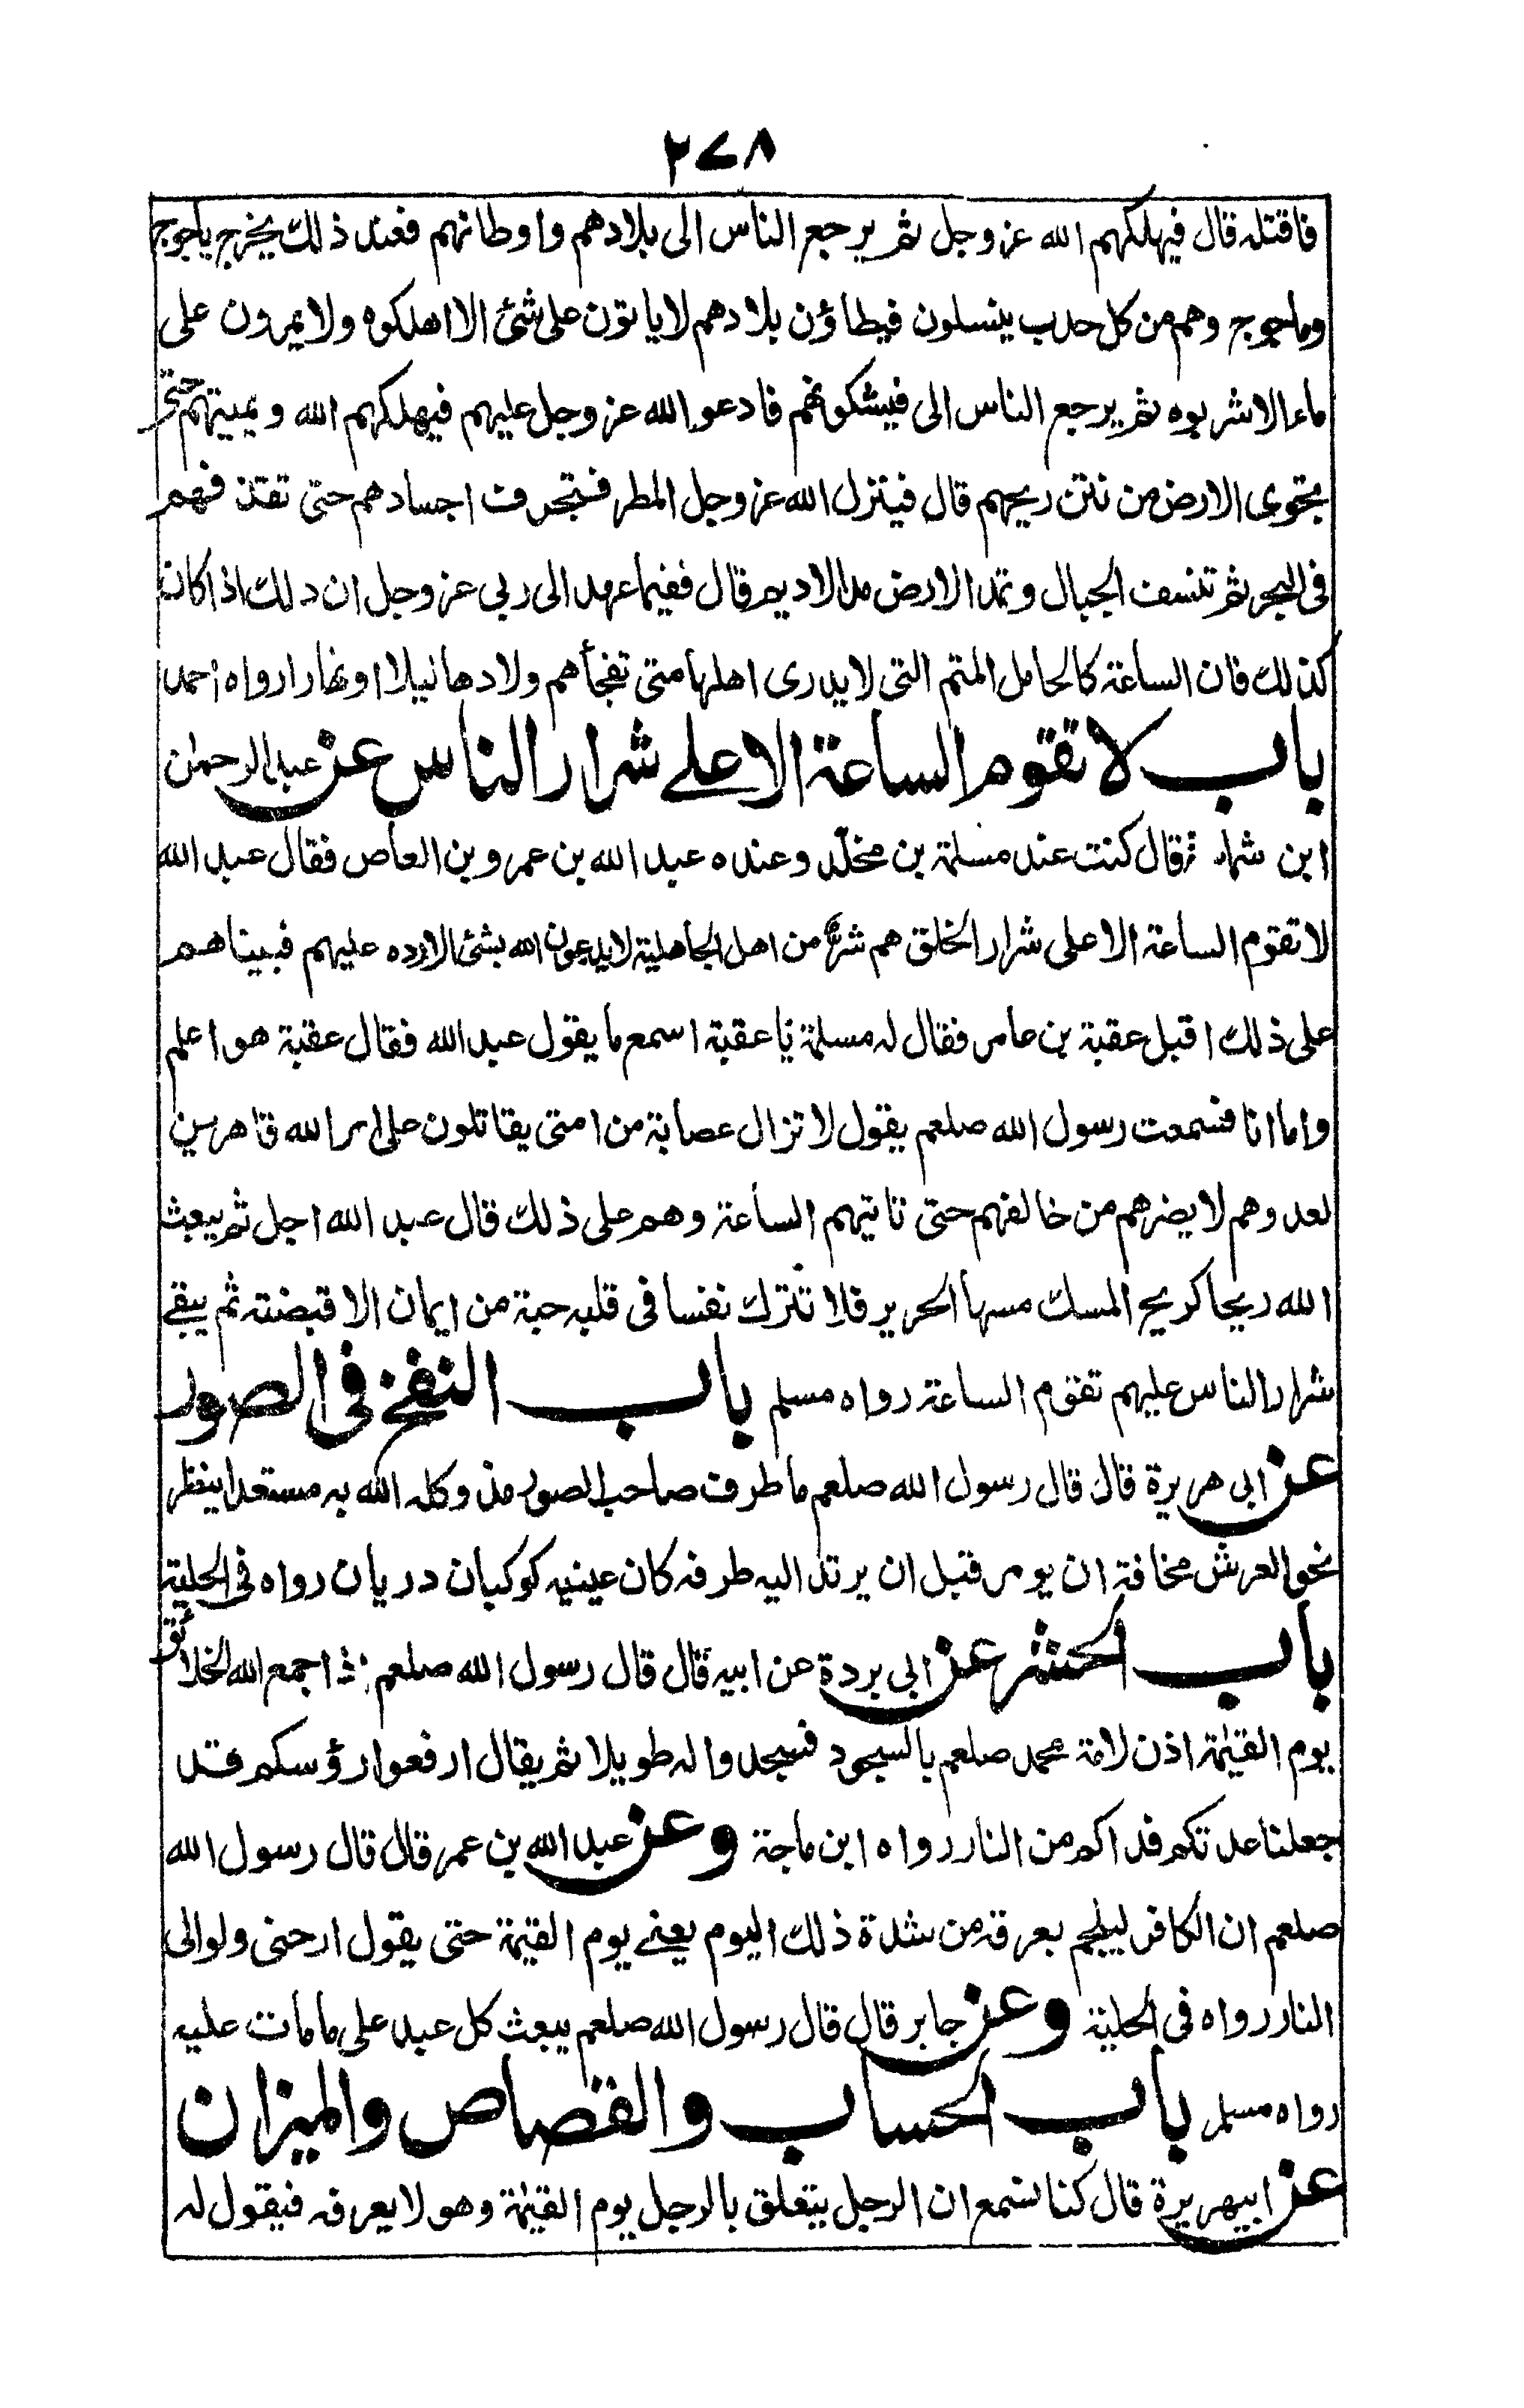 ٢٧٨
فاقتله قال فيهلكهم الله عز وجل ثم يرجع الناس الى بلادهم واوطانهم فعند ذلك يخرج ياجوج
وماجوج وهم من كل حدب ينسلون فيطاؤن بلادهم لا ياتون على شئ الا اهلكوه ولا يمرون على
ماء الا شربوه ثم يرجع الناس الى فيشكونهم فادعو الله عز وجل عليهم فيهلكهم الله ويميتهم حتى
يجتوى الارض من نتن ريحهم قال فينزل الله عز وجل المطر فتجرف اجسادهم حتى تقذفهم
فى البحر ثم تنسف الجبال وتمد الارض مد الاديم قال ففيما عهد الى ربي عز وجل ان ذلك اذا كان
كذلك فان الساعة كالحامل المتم التى لا يدرى اهلها متى تفجأهم ولادها ليلا او نهارا رواه احمد
باب لا تقوم الساعة الا على شرار الناس عن عبد الرحمن
ابن شماسة قال كنت عند مسلمة بن مخلد وعنده عبد الله بن عمرو بن العاص فقال عبد الله
لا تقوم الساعة الا على شرار الخلق هم شر من اهل الجاهلية لا يدعون الله بشئ الا رده عليهم فبيناهم
على ذلك اقبل عقبة بن عامر فقال له مسلمة يا عقبة اسمع ما يقول عبد الله فقال عقبة هو اعلم
واما انا فسمعت رسول الله صلعم يقول لا تزال عصابة من امتى يقاتلون على امر الله قاهرين
لعدوهم لا يضرهم من خالفهم حتى تاتيهم الساعة وهم على ذلك قال عبد الله اجل ثم يبعث
الله ريحا كريح المسك مسها الحرير فلا تترك نفسا فى قلبه حبة من ايمان الا قبضته ثم يبقى
شرار الناس عليهم تقوم الساعة رواه مسلم باب النفخ فى الصور
عن ابى هريرة قال قال رسول الله صلعم ما طرف صاحب الصور مذ وكله الله به مستعدا ينظر
نحو العرش مخافة ان يومر قبل ان يرتد اليه طرفه كان عينيه كوكبان دريان رواه فى الحلية
باب الحشر عن ابى بردة عن ابيه قال قال رسول الله صلعم اذا جمع الله الخلائق
يوم القيمة اذن لامة محمد صلعم بالسجود فسجدوا له طويلا ثم يقال ارفعوا رؤسكم قد
جعلنا عدتكم فداكم من النار رواه ابن ماجة وعن عبد الله بن عمر قال قال رسول الله
صلعم ان الكافر ليلجم بعرقه من شدة ذلك اليوم يعنى يوم القيمة حتى يقول ارحنى ولو الى
النار رواه فى الحلية وعن جابر قال قال رسول الله صلعم يبعث كل عبد على ما مات عليه
رواه مسلم باب الحساب والقصاص والميزان
عن ابيهريرة قال كنا نسمع ان الرجل يتعلق بالرجل يوم القيمة وهو لا يعرفه فيقول له